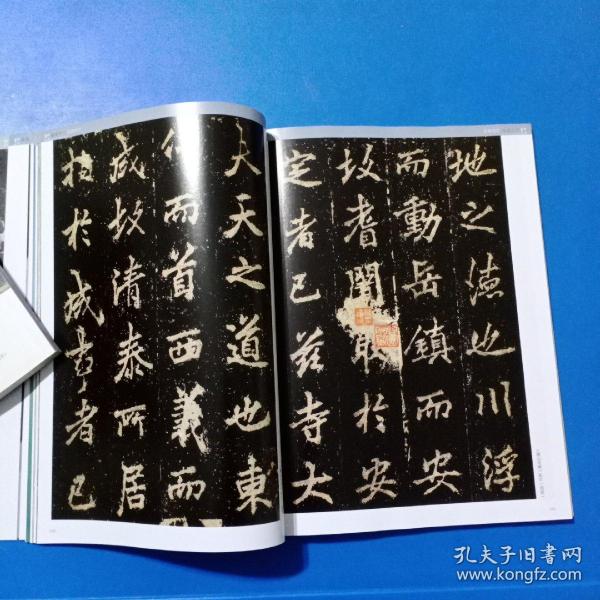 夫天之道也東
仁而首西義而
成故清泰所居
指於成事者已
地之德也川浮
而動岳鎮而安
故耆闍取於安
定者已茲寺大
孔夫子旧書网
www.kongfz.com